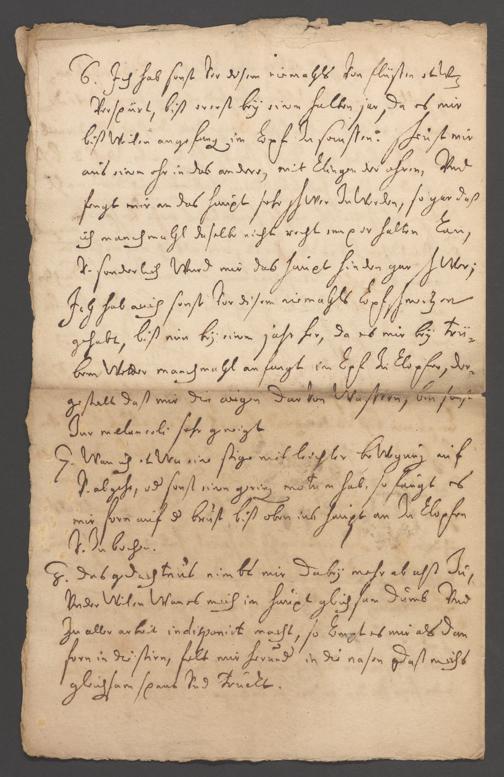 6. Ich hab sonst vor disem niemahls von flüssen etwz
verspürt, biß ererst bey einem halben jar, da es mir
bißweilen angefang im Kopf zu saussen:
aus einem ohr in das andere, mit Klingen der ohren, Und
fengt mir an das haupt sehr schwer zu werden, so gar daß
ich manchmahl dasselb nicht recht empor halten kan,
V. sonderlich Wird mir das haupt hinden gar schwer;
Ich hab auch sonst vor disem niemahls Kopfschmertzen
gehabt, biß nun bey einem jahr her, da es mir bey trü-
bem Wetter manchmahl anfangt im Kopf zu Klopfen, der-
gestalt daß mir die augen davon Wässern, bin sonst
zur melancoli sehr geneigt
7. Wan ich etWa eine stige mit leichter beWegung auf
V. abgehe, od sonst eine gering motion hab, so fängt es
mir forn auf d brust biß oben ins haupt an zu Klopfen
V. zu bochen.
8. das gedächtnüs nimbt mir dabey mehr ab alß zu,
Under Wilen Wan es mich im haupt gleichsam dumb Und
zu aller arbeit indisponirt macht, so Kompt es mir als dan
forn in die stirn, felt mir herund in die nasen daß michs
gleichsam spant Und truckt.